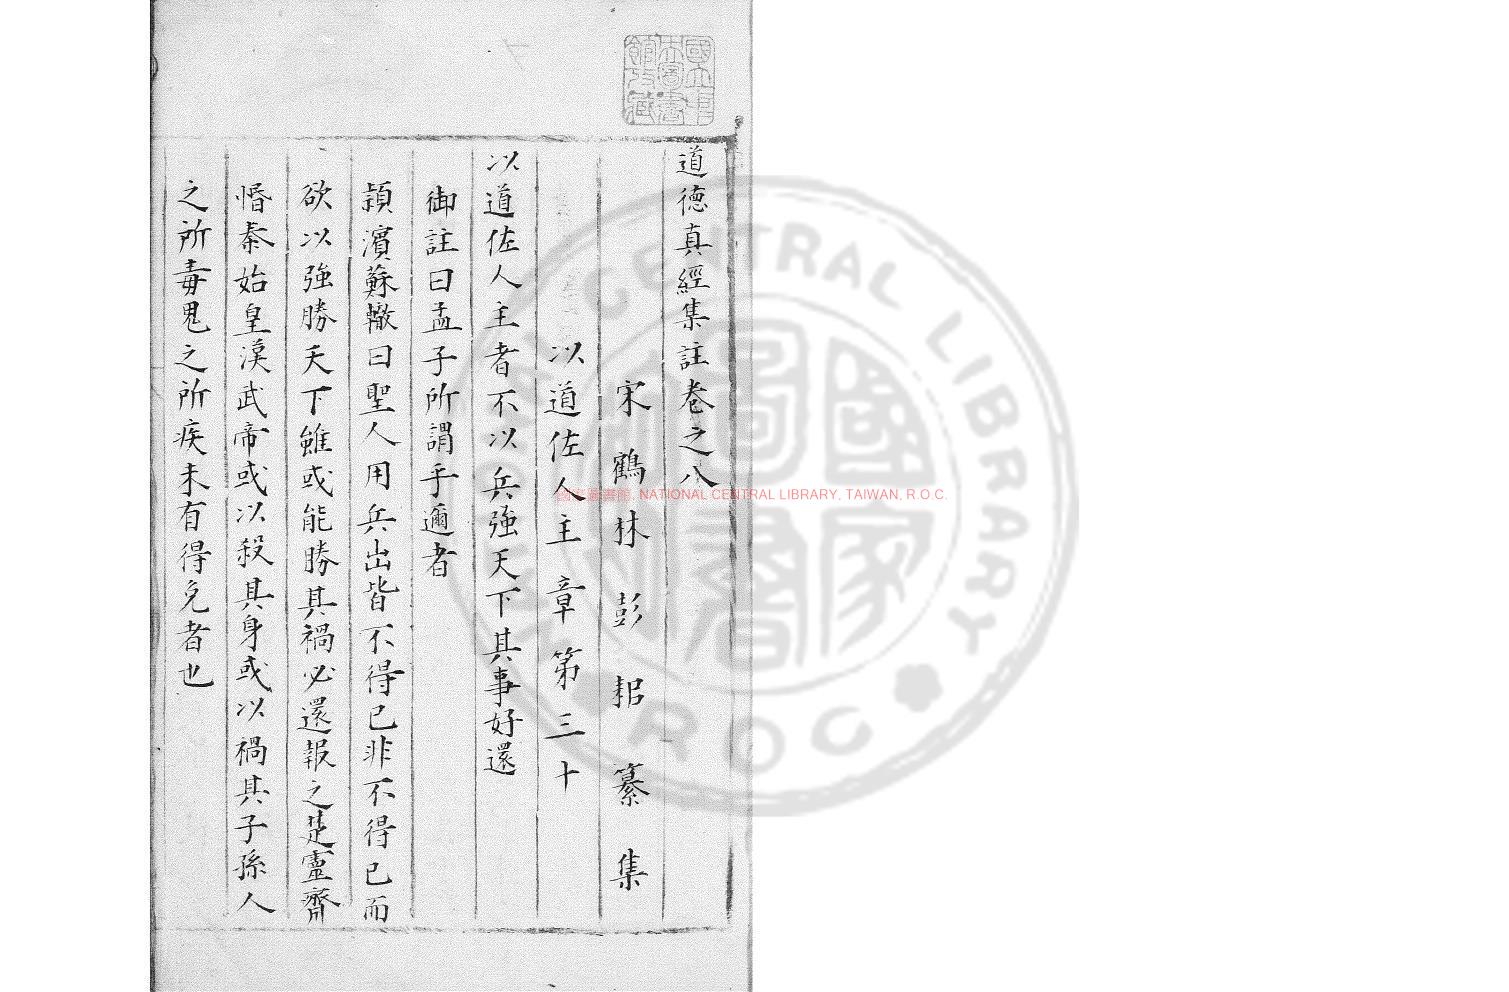 道德真經集註卷之八
宋鶴林彭耜纂集
以道佐人主章第三十
以道佐人主者不以兵強天下其事好還
御註曰孟子所謂乎邇者
潁濱蘇轍曰聖人用兵出皆不得已非不得已而
欲以強勝天下雖或能勝其禍必還報之楚靈齊
湣秦始皇漢武帝或以殺其身或以禍其子孫人
之所毒鬼之所疾未有得免者也
國立中
央圖書
館收藏
國家圖書館, NATIONAL CENTRAL LIBRARY, TAIWAN, R.O.C.